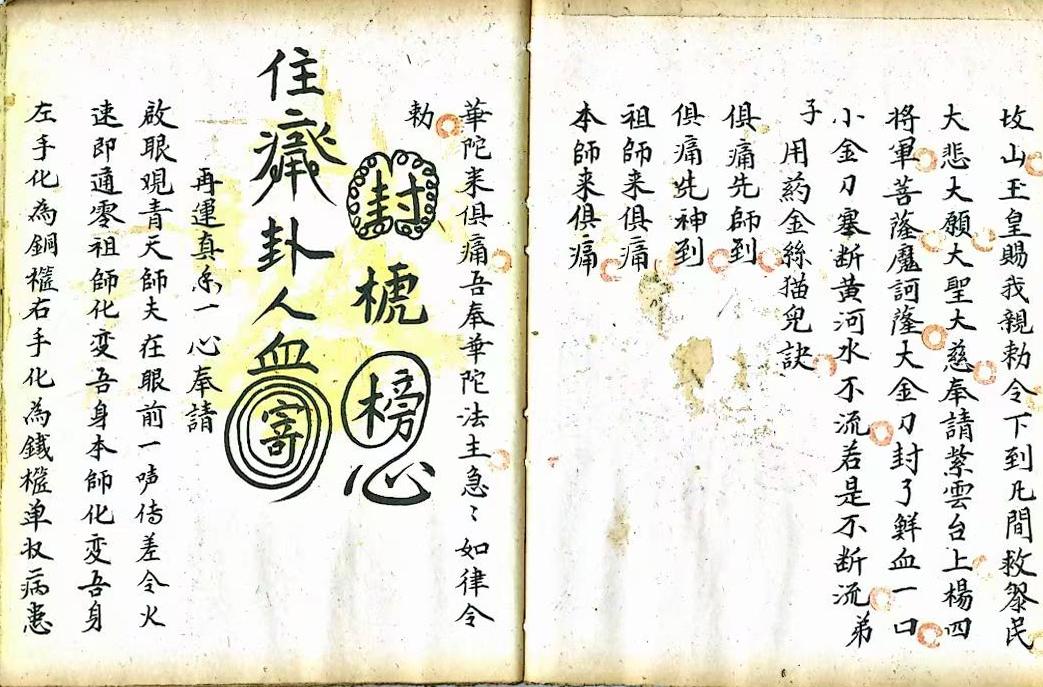 山玉皇賜我親勅令下到凡間救黎民
大悲大願大聖大慈奉請紫雲台上楊四
將軍菩薩魔訶薩大金刀封了鮮血一口
小金刀塞斷黃河水不流若是不断流弟
子用药金絲猫兒訣
俱痛先師到
俱痛先神到
祖師来俱痛
本師来俱痛
華陀来俱痛吾奉華陀法主急〻如律令
勅
封 榜心
住 卦人血寄
再運真一心奉請
啟眼观青天師夫在眼前一声傳差令火
速即通零祖師化変吾身本師化変吾身
左手化為銅右手化為鉄单收病患